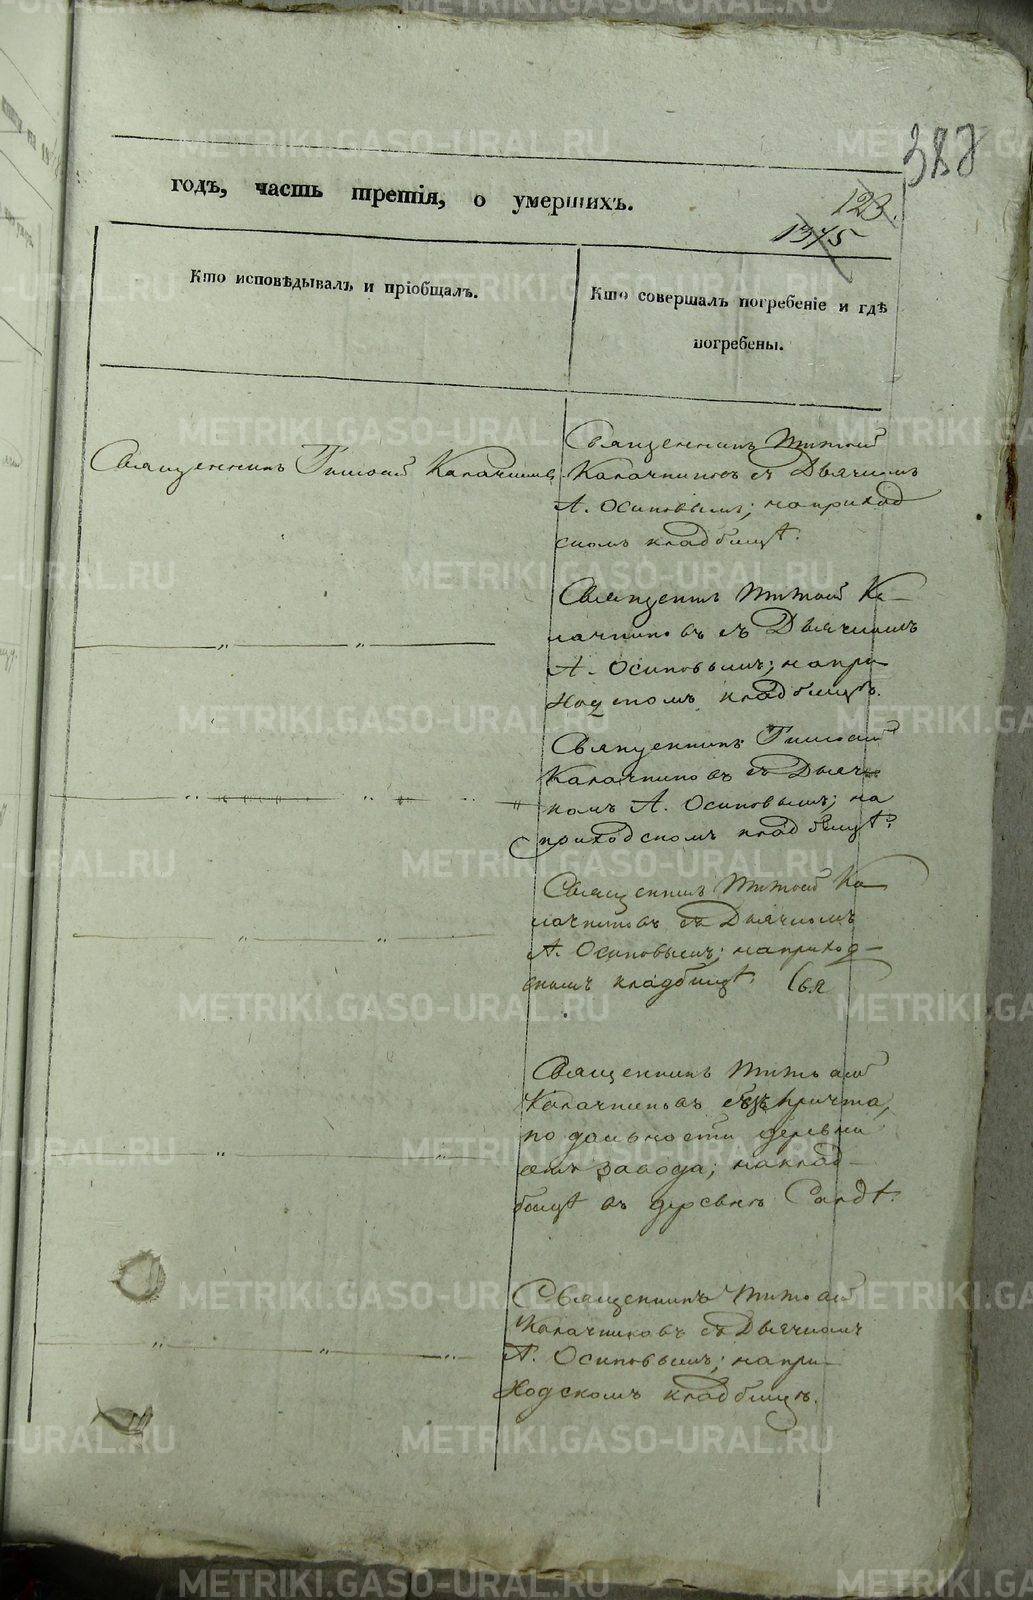 388
годъ, часть третія, о умершихъ.
123.
1375
Кто исповѣдывалъ и пріобщалъ.
Кто совершалъ погребеніе и гдѣ
погребены.
Священникъ Титовій Калачников
Священникъ Титовій
Калачниковъ съ Дьячкомъ
А. Осиповымъ; на приход
скомъ кладбищѣ.
Священникъ Титовій Ка-
лачниковъ съ Дьячкомъ
А. Осиповымъ; на при
ходскомъ кладбищѣ.
Священникъ Титовій
Калачниковъ съ Дьяч
комъ А. Осиповымъ; на
приходскомъ кладбищѣ.
Священникъ Титовій Ка
лачниковъ съ Дьячкомъ
А. Осиповымъ; на приход-
скомъ кладбищѣ Свя
Священникъ Титовій
Калачниковъ безъ причта,
по дальности деревни
отъ завода; на клад-
бищѣ въ деревнѣ
Священникъ Титовій
Калачниковъ съ Дьячкомъ
А. Осиповымъ; на при-
ходскомъ кладбищѣ.
METRIKI.GASO-URAL.RU